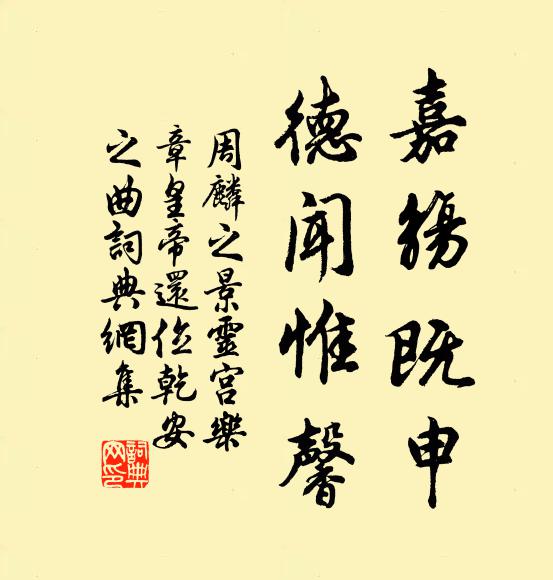 嘉觴既申
德闻惟馨
周麟之景靈宫樂
章皇帝還位乾安
之曲詞典網集
詞典
网印